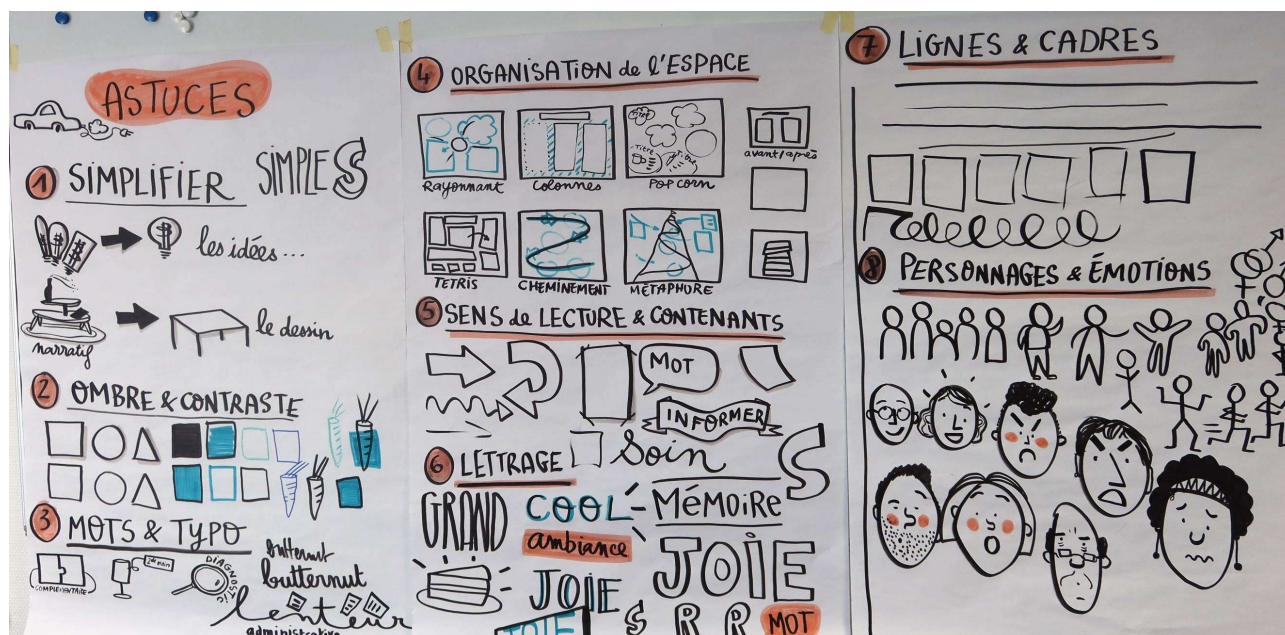 ASTUCES
1 SIMPLIFIER
SIMPLES
les idées...
narratif
le dessin
2 OMBRE & CONTRASTE
3 MOTS & TYPO
COMPLÉMENTAIRE
2de MAIN
DIAGNOSTIC
butternut
butternut
lenteur
administrative
4 ORGANISATION de l'ESPACE
Rayonnant
Colonnes
POP CORN
avant/après
Titre
TETRIS
CHEMINEMENT
MÉTAPHORE
5 SENS de LECTURE & CONTENANTS
MOT
INFORMER
6 LETTRAGE
Soin
S
GRAND
COOL
Mémoire
ambiance
JOIE
JOIE
JOIE
S R R MOT
7 LIGNES & CADRES
8 PERSONNAGES & ÉMOTIONS